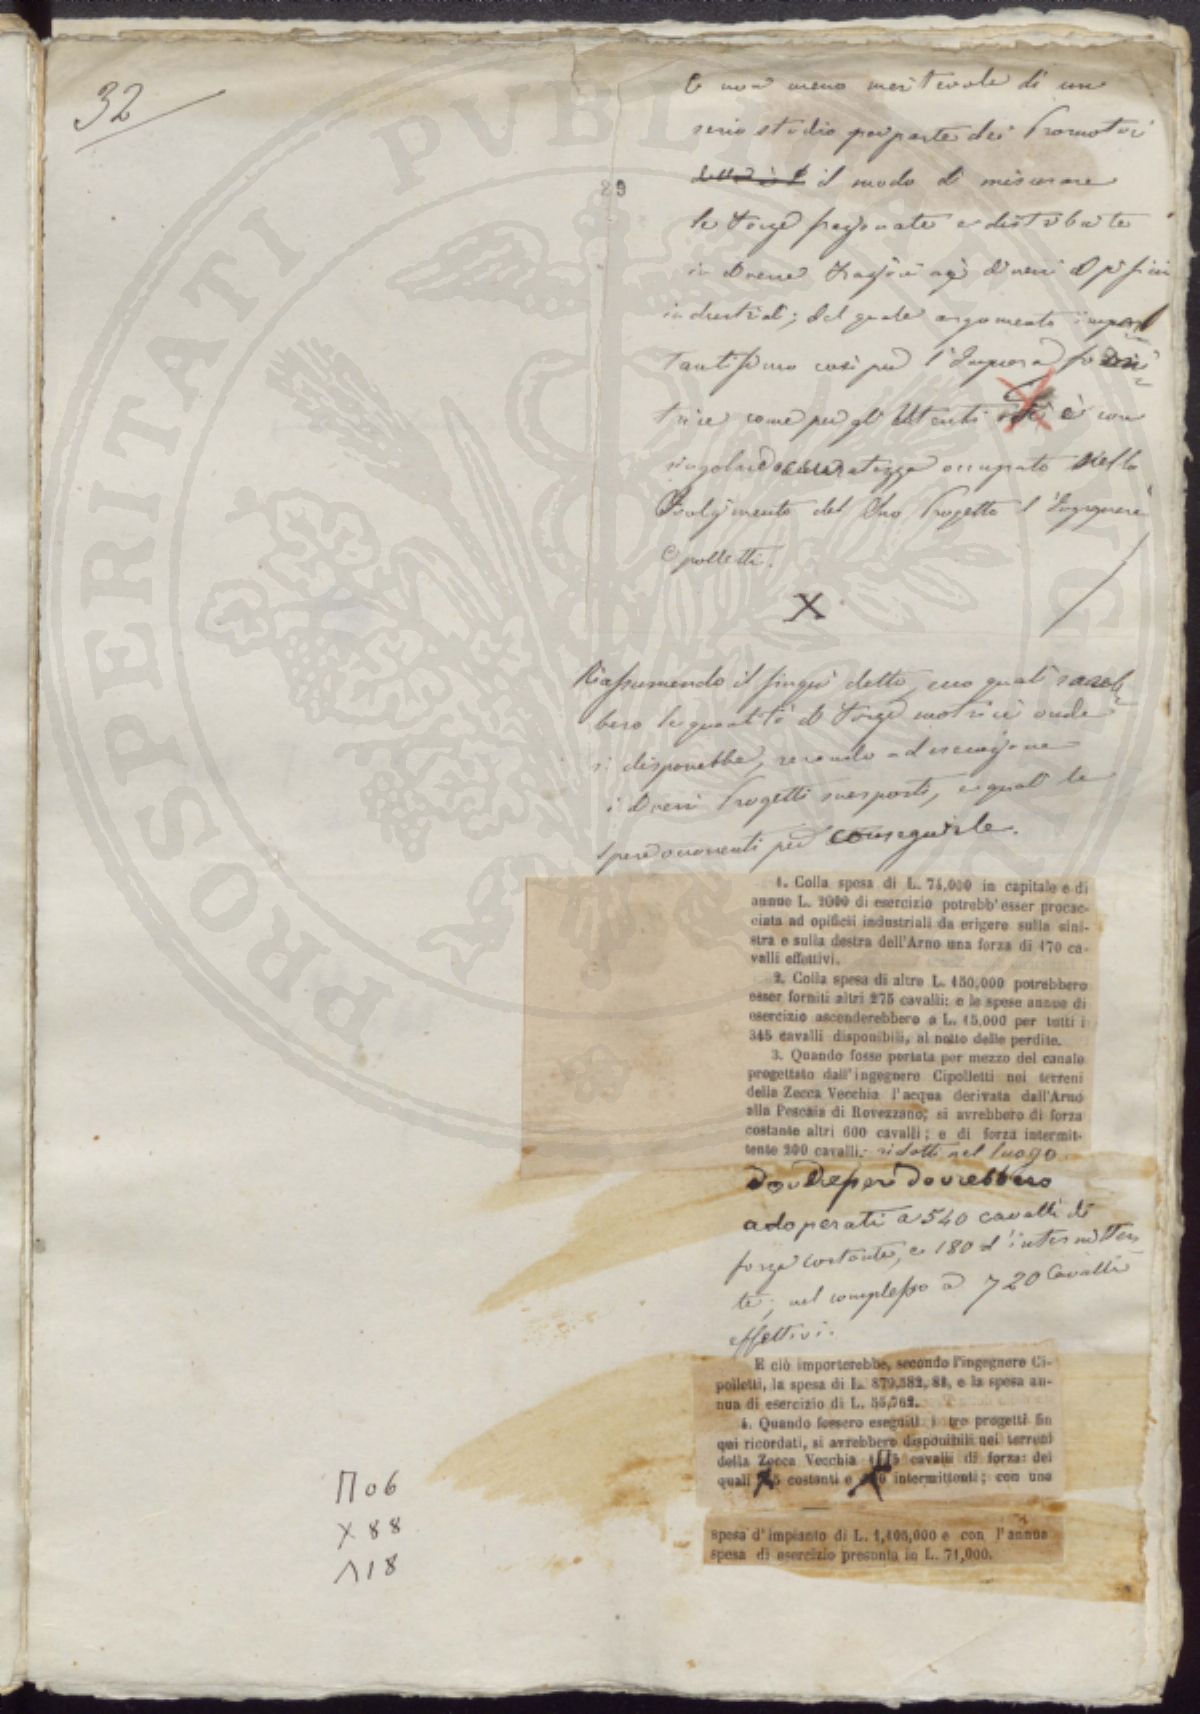 32
E non meno meritevole di un
serio studio per parte dei Promotori
il modo di misurare
le forze frazionate e distribuite
in diverse frazioni agli diversi Opifici
industriali; del quale argomento impor
tantissimo così per l'Impresa
trice come per gli Utenti è con
singolare accuratezza occupato nello
Svolgimento del Suo Progetto l'Ingegnere
Cipolletti.
X
29
Riassumendo il finquì detto, ecco quali sareb
bero le quantità di forze motrici onde
si disporrebbe, recando ad esecuzione
i diversi Progetti suesposti, e quali le
spese occorrenti per conseguirle.
1. Colla spesa di L. 74,000 in capitale e di
annue L. 2000 di esercizio potrebb'esser procac-
ciata ad opifici industriali da erigere sulla sini-
stra e sulla destra dell'Arno una forza di 170 ca-
valli effettivi.
2. Colla spesa di altre L. 150,000 potrebbero
esser forniti altri 275 cavalli: e le spese annue di
esercizio ascenderebbero a L. 15,000 per tutti i
345 cavalli disponibili, al netto delle perdite.
3. Quando fosse portata per mezzo del canale
progettato dall'ingegnere Cipolletti nei terreni
della Zecca Vecchia l'acqua derivata dall'Arno
alla Pescaia di Rovezzano; si avrebbero di forza
costante altri 600 cavalli; e di forza intermit-
tente 200 cavalli; ridotti nel luogo
dovrebbero
adoperati a 540 cavalli di
forza costante, e 180 d'intermitten
te; nel complesso a 720 Cavalli
effettivi.
E ciò importerebbe, secondo l'ingegnere Ci-
polletti, la spesa di L. 879,382, 81, e la spesa an-
nua di esercizio di L. 55,762.
4. Quando fossero eseguiti i tre progetti fin
qui ricordati, si avrebbero disponibili nei terreni
della Zecca Vecchia cavalli di forza: dei
quali costanti e intermittenti; con una
spesa d'impianto di L. 1,105,000 e con l'annua
spesa di esercizio presunta in L. 71,000.
П06
X88
Λ18
PROSPERITATI PVBLICAE AVGENDAE